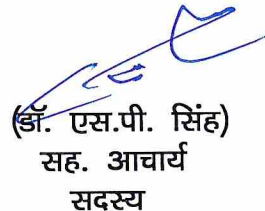 (डॉ. एस.पी. सिंह)
सह. आचार्य
सदस्य